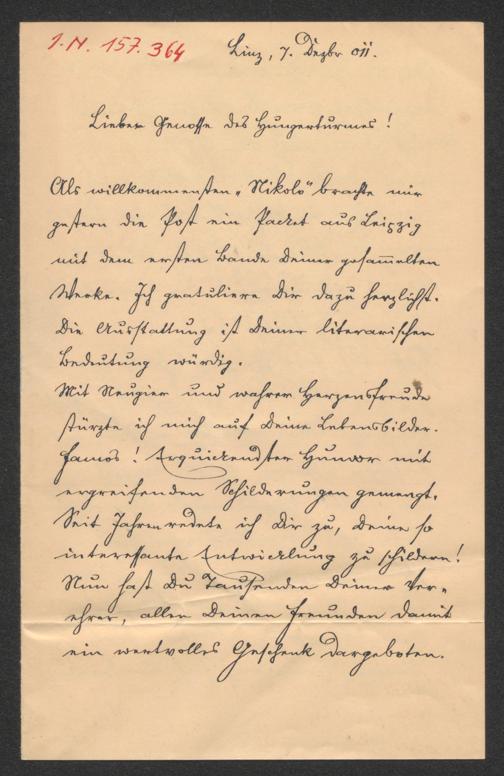 I.N. 157.364
Linz, 7. Dezbr 011.
Lieber Genosse des Hungerturmes!
Als willkommensten „Nikolo“ brachte mir
gestern die Post ein Packet aus Leipzig
mit dem ersten Bande Deiner gesam̅elten
Werke. Ich gratuliere Dir dazu herzlichst.
Die Ausstattung ist Deiner literarischen
Bedeutung würdig.
Mit Neugier und wahrer Herzensfreude
stürzte ich mich auf Deine Lebensbilder.
Famos! Erquickendster Humor mit
ergreifenden Schilderungen gemengt.
Seit Jahren redete ich Dir zu, Deine so
interessante Entwicklung zu schildern!
Nun hast Du Tausenden Deiner Ver-
ehrer, allen Deinen Freunden damit
ein wertvolles Geschenk dargeboten.